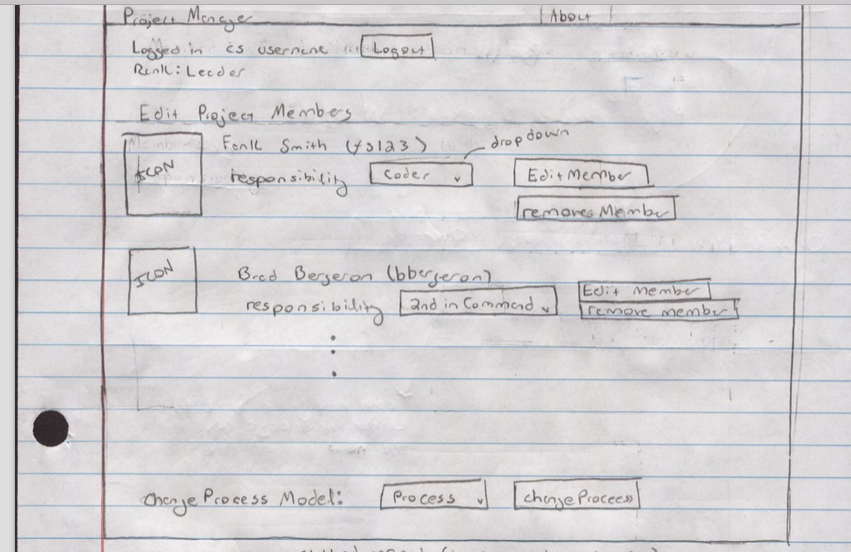 Project Manager
About
Logged in as username Logout
Rank: Leader
Edit Project Members
ICON
Fank Smith (fs123)
dropdown
responsibility Coder
Edit Member
removes Member
ICON
Brad Bergeron (bbergeron)
responsibility 2nd in Command
Edit Member
remove member
Change Process Model: Process change Process